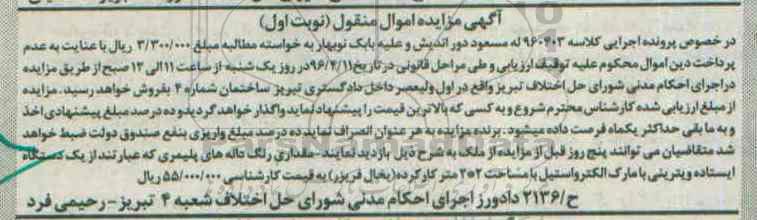 آگهی مزایده اموال منقول (نوبت اول)
در خصوص پرونده اجرایی کلاسه ۹۶۰۴۰۳ له مسعود دور اندیش و علیه بابک نوبهار به خواسته مطالبه مبلغ ۳/۳۰۰/۰۰۰ ریال با عنایت به عدم
پرداخت دین اموال محکوم علیه توقیف ارزیابی و طی مراحل قانونی در تاریخ ۹۶/۴/۱۱ در روز یک شنبه از ساعت ۱۱ الی ۱۲ صبح از طریق مزایده
در اجرای احکام مدنی شورای حل اختلاف تبریز واقع در اول ولیعصر داخل دادگستری تبریز ساختمان شماره ۴ بفروش خواهد رسید. مزایده
از مبلغ ارزیابی شده کارشناس محترم شروع و به کسی که بالاترین قیمت را پیشنهاد نماید واگذار خواهد گردید و ده درصد مبلغ پیشنهادی اخذ
و به ما بقی حداکثر یکماه فرصت داده میشود. برنده مزایده به هر عنوان انصراف نماید ده درصد مبلغ واریزی بنفع صندوق دولت ضبط خواهد
شد متقاضیان می توانند پنج روز قبل از مزایده از ملک به شرح ذیل بازدید نمایند-مقداری رنگ تاله های پلیمری که عبارتند از یک دستگاه
ایستاده ویترینی با مارک الکترواستیل با مساحت ۲*۲ متر کارکرده (یخبال فریزر) به قیمت کارشناسی ۵۵/۰۰۰/۰۰۰ ریال
ح/۲۱۳۶ دادورز اجرای احکام مدنی شورای حل اختلاف شعبه ۴ تبریز-رحیمی فرد